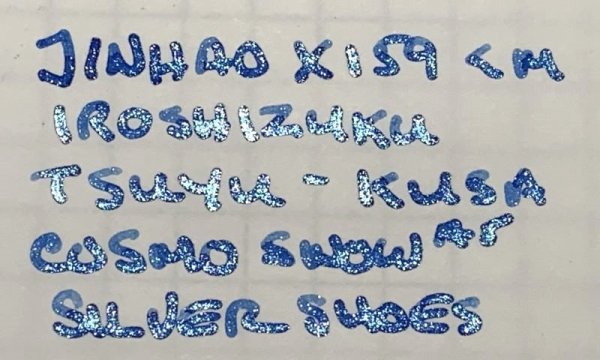 JINHAO X159 <M
IROSHIZUKU
TSUYU-KUSA
COSMO SNOW
SILVER SHOES